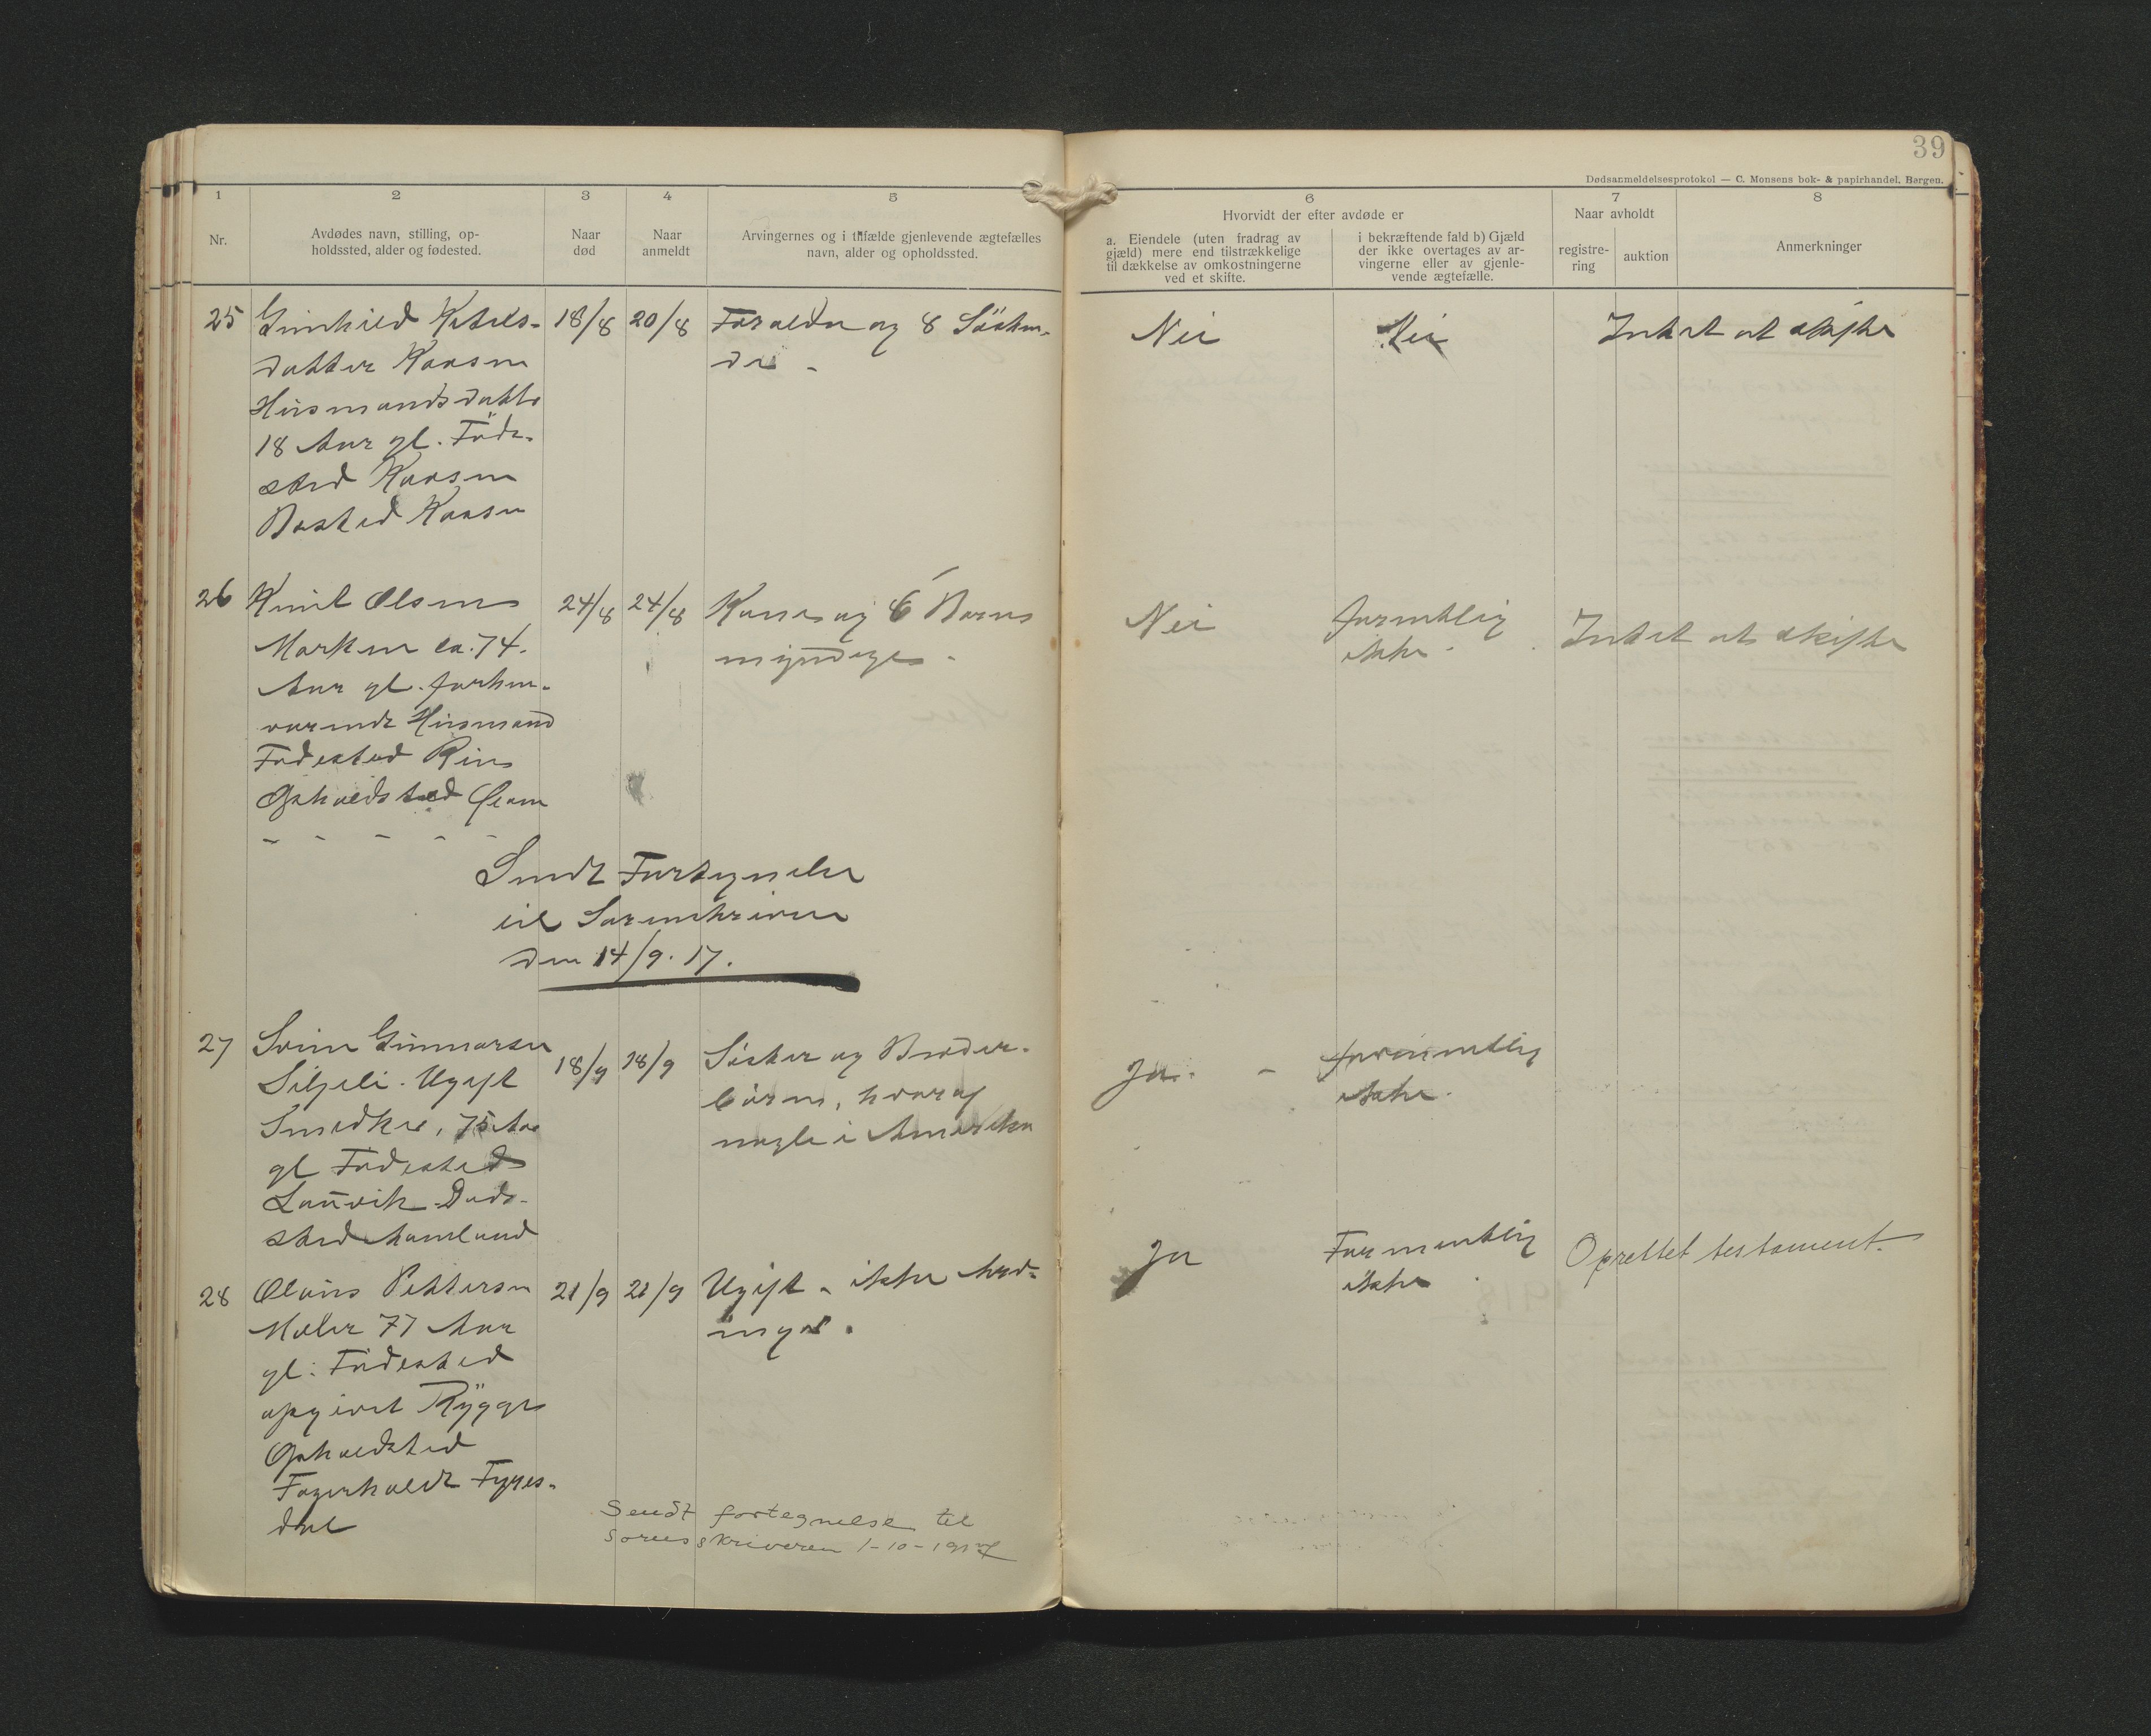 39
Dødsanmeldelsesprotokol — C. Monsens bok- & papirhandel, Bergen.
1 2 3 4 5 6 7 8
Nr.
Avdødes navn, stilling, op-
holdssted, alder og fødested.
Naar
død
Naar
anmeldt
Arvingernes og i tilfælde gjenlevende ægtefælles
navn, alder og opholdssted.
Hvorvidt der efter avdøde er
a. Eiendele (uten fradrag av
gjæld) mere end tilstrækkelige
til dækkelse av omkostningerne
ved et skifte.
i bekræftende fald b) Gjæld
der ikke overtages av ar-
vingerne eller av gjenle-
vende ægtefælle.
Naar avholdt
registre-
ring
auktion
Anmerkninger
25 Gunhild Ketils-
datter Kaasen
Husmandsdatter
18 Aar gl. Föde-
sted Kaasen
Bosted Kaasen
18/8 20/8
Forældre og 8 Söskend-
de -
Nei
Nei
Intet at skifte
26 Knut Olsen
Marken ca. 74.
Aar gl. forhen-
værende Husmand
Fødested
Opholdsted
24/8 24/8
Kone og 6 Børn
myndige -
Nei
formentlig
ikke.
Intet at skifte
Sendt Fortegnelse
til Sorenskriveren
den 14/9. 17.
27 Svein Gunnarsen
Ugift
75 Aar
gl Fødested
Döds-
sted
18/9 18/9
Söster og Broder-
börn, hvoraf
nogle i Amerika
Ja. -
formentlig
ikke.
28 Olaus Pettersen
Maler 77 Aar
gl: Födested
opgivet Rygge
Opholdsted
Fagerholdt Fyres-
dal
21/9 21/9
Ugift - ikke
Ja
Formentlig
ikke
Oprettet testament.
Sendt fortegnelse til
sorenskriveren 1-10-1917